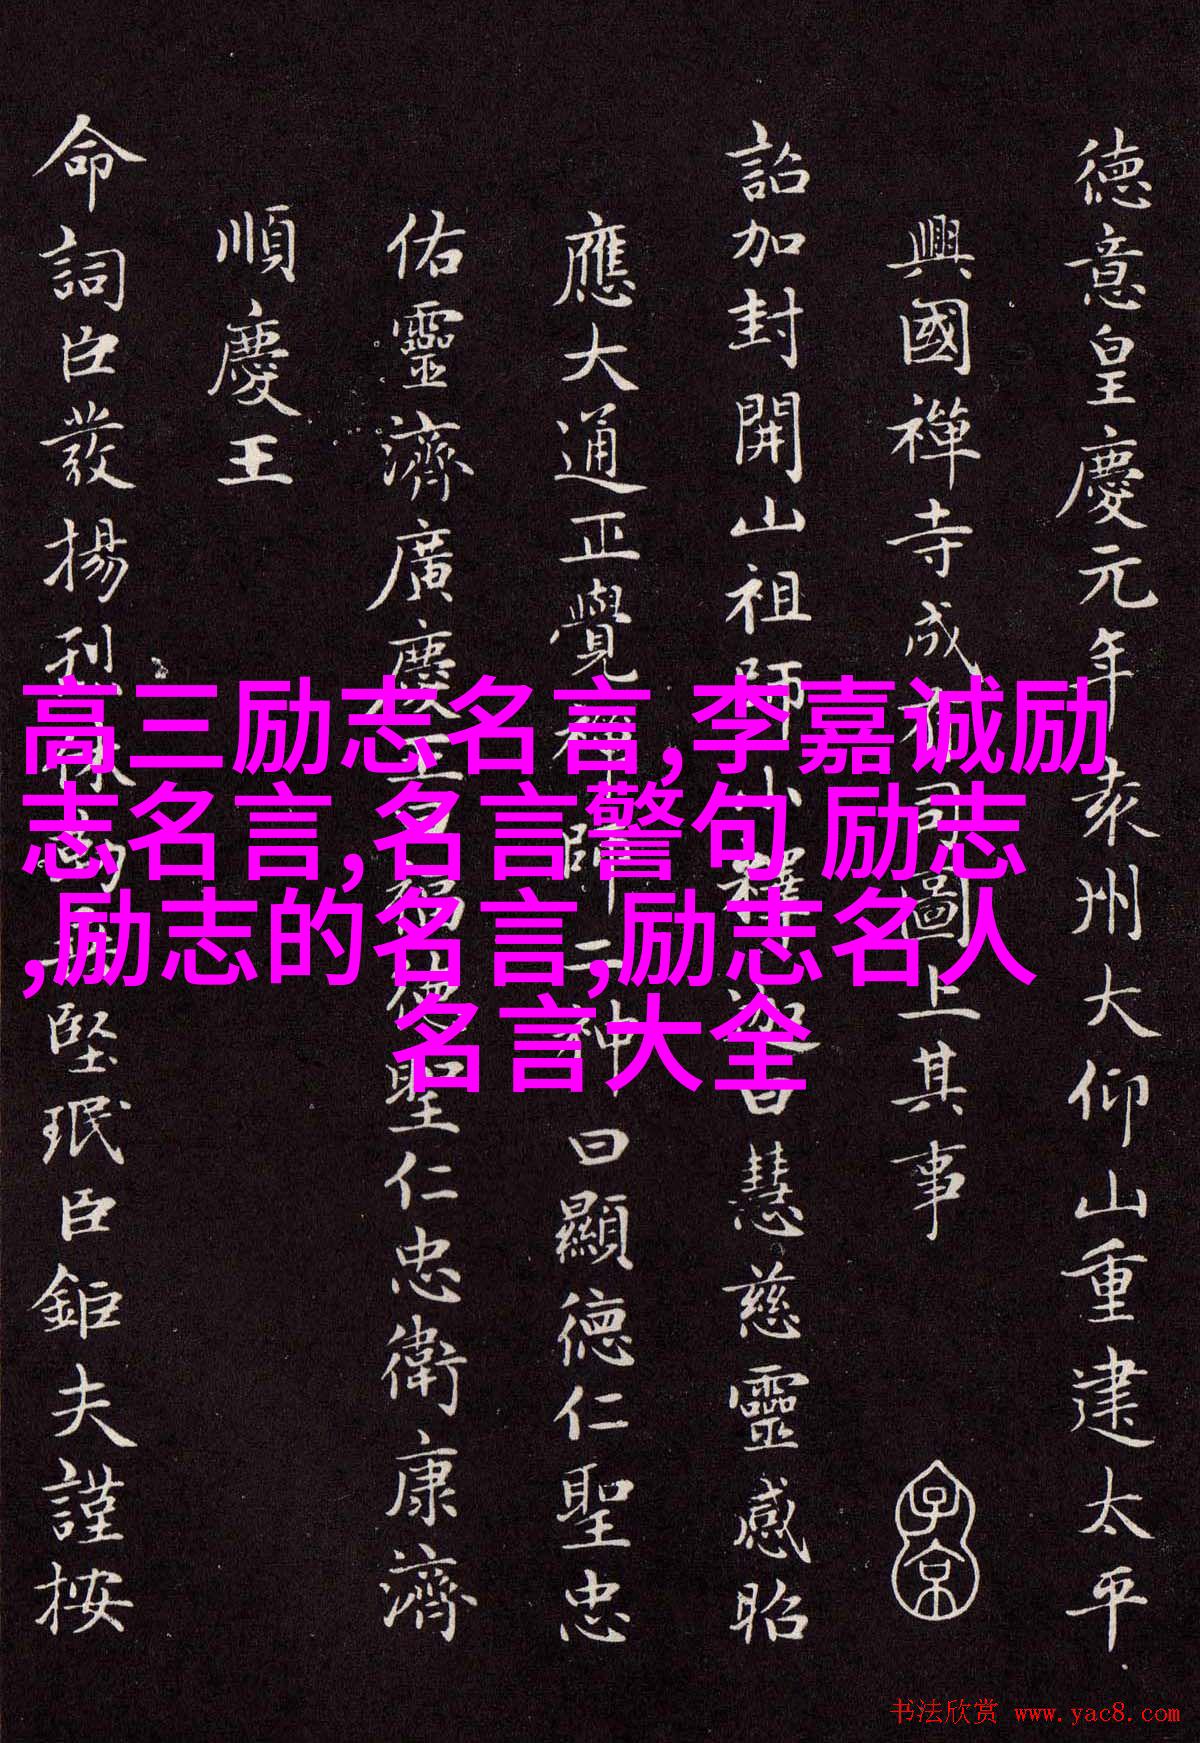 德意皇慶元年袁州大仰山重建太平
興國禪寺成圖上其事
詔加封開山祖師小釋迦曰慧慈靈感昭
應大通正覺禪師二神曰顯德仁聖忠
佑靈濟廣慶王曰福德聖仁忠衛康濟
順慶王
命詞臣發揚刊堅珉臣鉅夫謹按
子京
高三励志名言,李嘉诚励
志名言,名言警句 励志
,励志的名言,励志名人
名言大全
书法欣赏 www.yac8.com